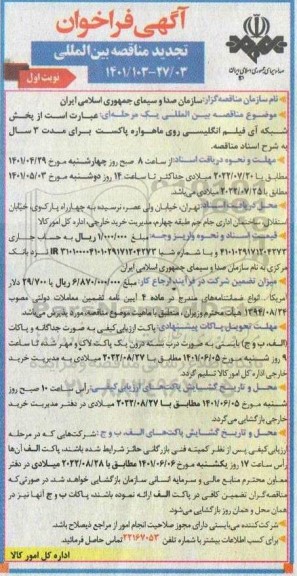 آگهی فراخوان
تجدید مناقصه بین المللی
۱۴۰۱/۱۰۳-۲۷/۰۳
نوبت اول
صدا و سیمای جمهوری اسلامی ایران
نام سازمان مناقصه‌گزار: سازمان صدا و سیمای جمهوری اسلامی ایران
موضوع مناقصه بین المللی یک مرحله‌ای: عبارت است از پخش
شبکه آی فیلم انگلیسی روی ماهواره پاکست برای مدت ۳ سال
به شرح اسناد مناقصه.
مهلت و نحوه دریافت اسناد: از ساعت ۸ صبح روز چهارشنبه مورخ ۱۴۰۱/۰۴/۲۹
مطابق با ۲۰۲۲/۰۷/۲۰ میلادی حداکثر تا ساعت ۱۴ روز دوشنبه مورخ ۱۴۰۱/۰۵/۰۳
مطابق با ۲۰۲۲/۰۷/۲۵ میلادی می‌باشد.
محل دریافت اسناد: تهران، خیابان ولی عصر، نرسیده به چهارراه پارک‌وی، خیابان
استقلال، ساختمان اداری جام جم طبقه چهارم، مدیریت خرید خارجی، اداره کل امور کالا
قیمت اسناد و نحوه واریز وجه: مبلغ ۱/۰۰۰/۰۰۰ ریال به حساب جاری
۴۱۰۱۰۲۹۱۷۱۲۰۴۲۷۲ و یا شماره شبا IR ۳۱۰۱۰۰۰۰۴۱۰۱۰۲۹۱۷۱۲۰۴۲۷۲ نزد بانک
مرکزی به نام سازمان صدا و سیمای جمهوری اسلامی ایران
میزان تضمین شرکت در فرآیند ارجاع کار: مبلغ ۶/۸۷۰/۰۰۰/۰۰۰ ریال یا ۲۹/۷۰۰ دلار
آمریکا. انواع ضمانتنامه‌های مندرج در ماده ۴ آیین نامه تضمین معاملات دولتی مصوب
۱۳۹۴/۰۸/۲۴ هیأت محترم وزیران، منطبق با ماهیت موضوع مناقصه، مورد پذیرش می‌باشد.
مهلت تحویل پاکات پیشنهادی: پاکت ارزیابی کیفی به صورت جداگانه و پاکات
(الف، ب و ج) بایستی به صورت دربسته درون یک پاکت لاک و مهر شده تا ساعت
۹ روز شنبه مورخ ۱۴۰۱/۰۶/۰۵ مطابق با ۲۰۲۲/۰۸/۲۷ میلادی به مدیریت خرید
خارجی اداره کل امور کالا تسلیم گردد.
محل و تاریخ گشایش پاکت‌های ارزیابی کیفی: رأس ساعت ۱۰ صبح روز
شنبه مورخ ۱۴۰۱/۰۶/۰۵ مطابق با ۲۰۲۲/۰۸/۲۷ میلادی در دفتر مدیریت خرید
خارجی بازگشایی می‌گردد.
محل و تاریخ گشایش پاکت‌های الف، ب و ج: شرکت‌هایی که در مرحله
ارزیابی کیفی پس از نظر کمیته فنی بازرگانی حائز شرایط شده باشند، پاکت الف آن‌ها
رأس ساعت ۱۷ روز یکشنبه مورخ ۱۴۰۱/۰۶/۰۶ مطابق با ۲۰۲۲/۰۸/۲۸ میلادی در دفتر
معاون محترم منابع مالی و سرمایه انسانی سازمان بازگشایی خواهد شد. در صورتی که
مناقصه‌گران تضمین کافی در پاکت الف ارائه نموده باشند، پاکات ب و ج آنها نیز در
همان محل و همان روز بازگشایی می‌شود.
شرکت کننده می‌بایستی دارای مجوز صلاحیت انجام امور از مراجع ذیصلاح باشد.
برای کسب اطلاعات بیشتر با شماره تلفن ۲۲۱۶۷۰۵۳ تماس حاصل فرمائید.
اداره کل امور کالا